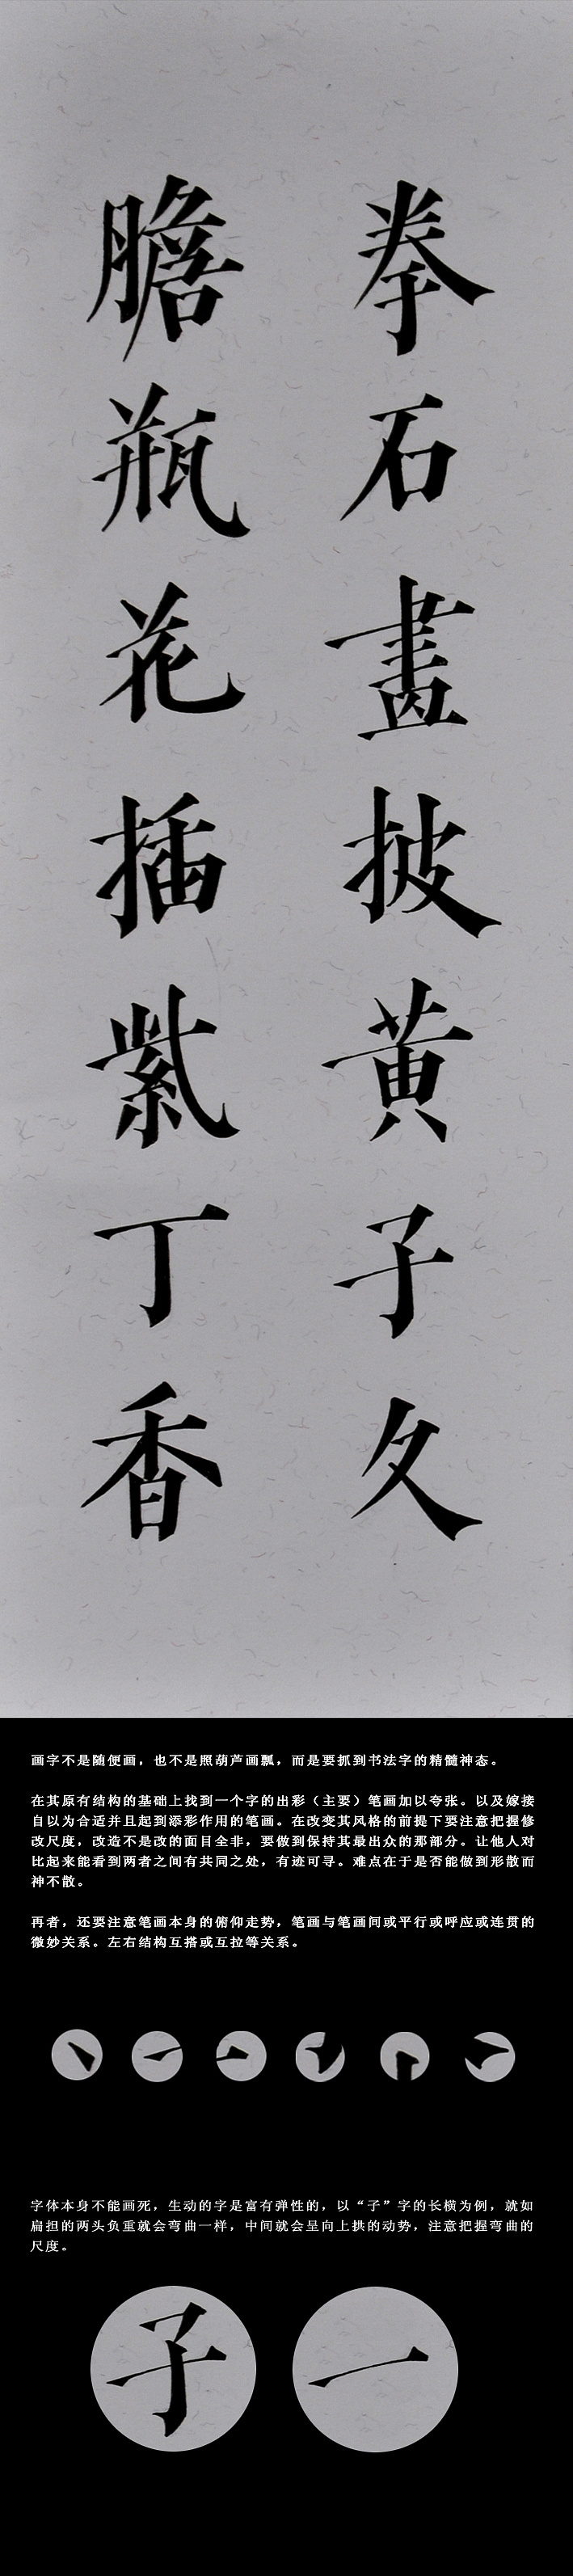 拳石畫披黃子久
膽瓶花插紫丁香
画字不是随便画，也不是照葫芦画瓢，而是要抓到书法字的精髓神态。
在其原有结构的基础上找到一个字的出彩（主要）笔画加以夸张。以及嫁接
自以为合适并且起到添彩作用的笔画。在改变其风格的前提下要注意把握修
改尺度，改造不是改的面目全非，要做到保持其最出众的那部分。让他人对
比起来能看到两者之间有共同之处，有迹可寻。难点在于是否能做到形散而
神不散。
再者，还要注意笔画本身的俯仰走势，笔画与笔画间或平行或呼应或连贯的
微妙关系。左右结构互搭或互拉等关系。
字体本身不能画死，生动的字是富有弹性的，以“子”字的长横为例，就如
扁担的两头负重就会弯曲一样，中间就会呈向上拱的动势，注意把握弯曲的
尺度。
子 一